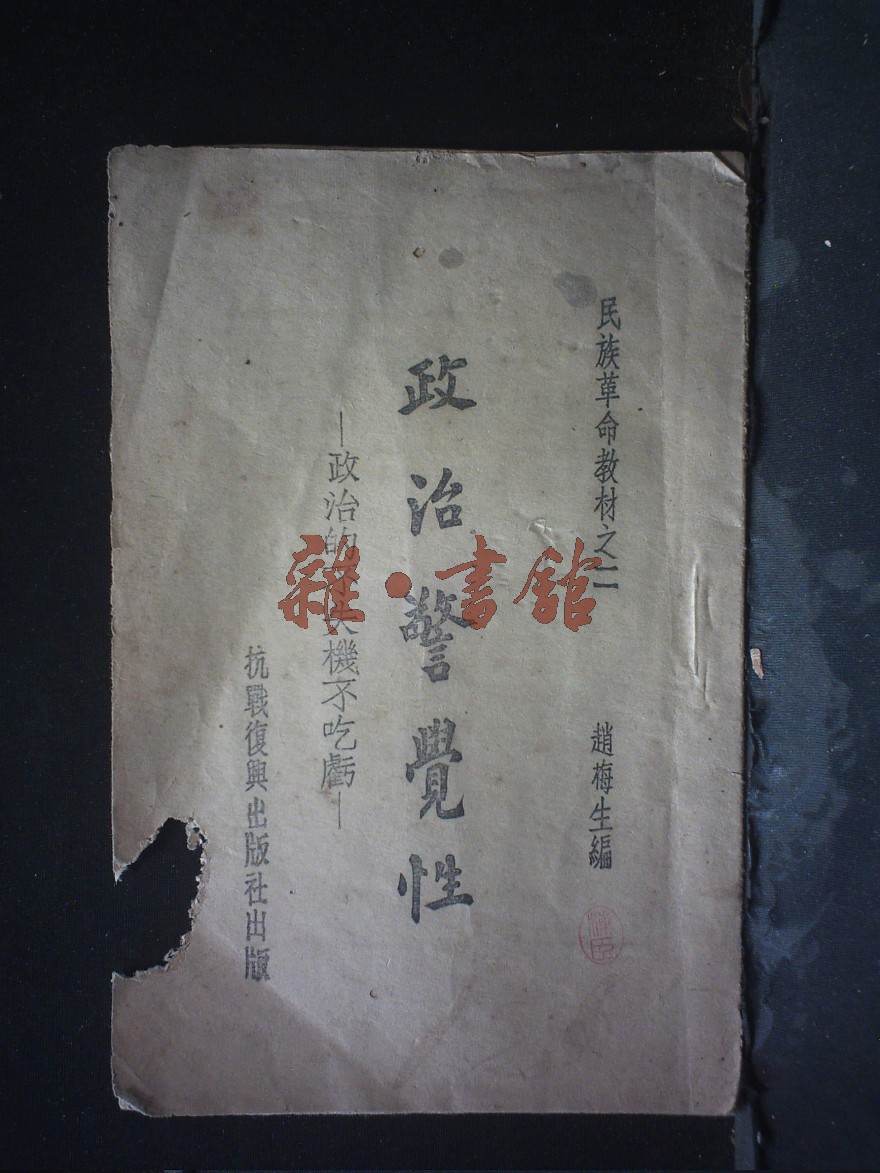 民族革命教材之二
趙梅生編
政治警覺性
—政治的不失機不吃虧—
抗戰復興出版社出版
雜·書館